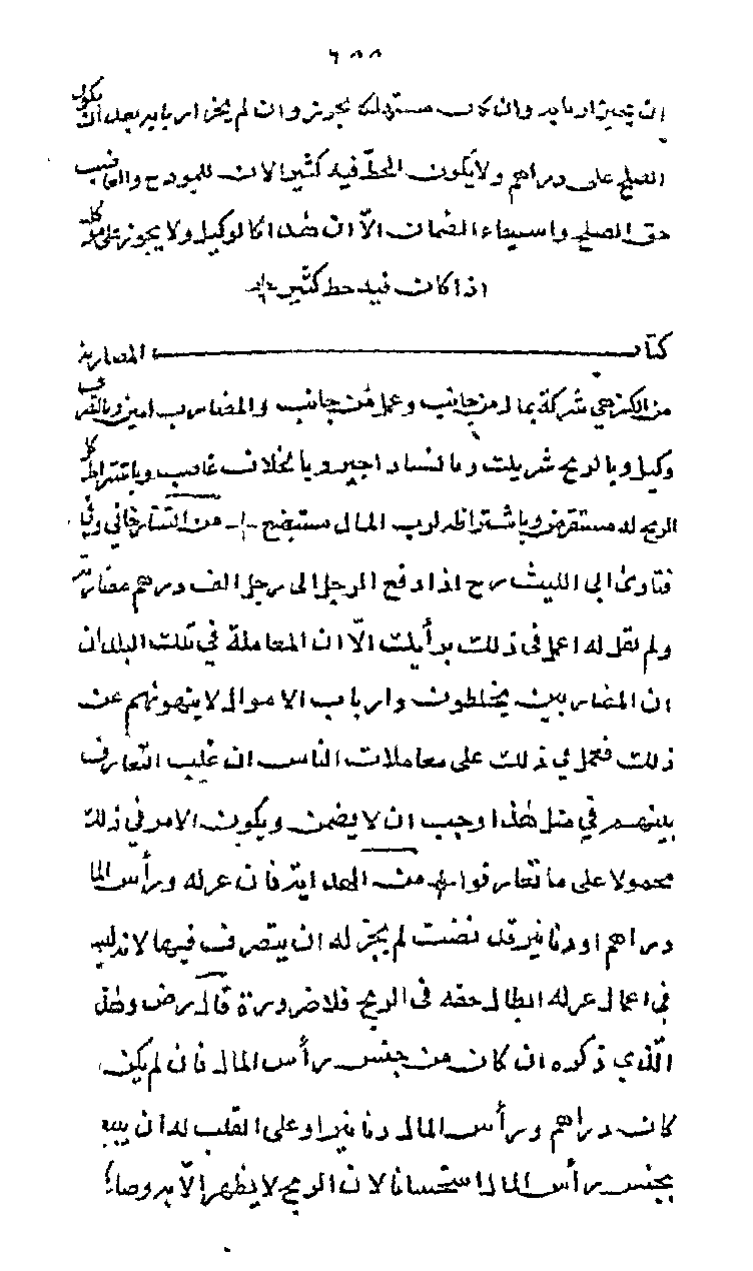 ٦٨٨
الصلح على دراهم ولا يكون الحط فيه كثيرا لان للمودع والغاصب
حق الصلح واستيفاء الضمان الّا ان هذا كالوكيل ولا يجوز على موكله
اذا كان فيه حط كثير
كتاب المضاربة
من الكنز هي شركة بمال من جانب وعمل من جانب والمضارب امين وبالتصرف
وكيل وبالربح شريك وبالفساد اجير وبالخلاف غاصب وباشتراط كل
الربح له مستقرض وباشتراطه لرب المال مستبضع من التتارخاني وفي
فتاوى ابى الليث رح اذا دفع الرجل الى رجل الف درهم مضاربة
ولم يقل له اعمل فى ذلك برأيك الّا ان المعاملة في تلك البلدان
ان المضاربين يخلطون وارباب الاموال لا ينهونهم عن
ذلك فعمل في ذلك على معاملات الناس ان غلب التعارف
بينهم في مثل هذا وجب ان لا يضمن ويكون الامر في ذلك
محمولا على ما تعارفوا من الهداية فان عزله ورأس المال
دراهم او دنانير قد نضت لم يجز له ان يتصرف فيها لانه ليس
في اعمال عزله ابطال حقه فى الربح فلا ضرورة قال رض وهذا
الّذي ذكره ان كان من جنس رأس المال فان لم يكن
كان دراهم ورأس المال دنانير او على القلب له ان يبيع
بجنس رأس المال استحسانا لان الربح لا يظهر الّا به وصار